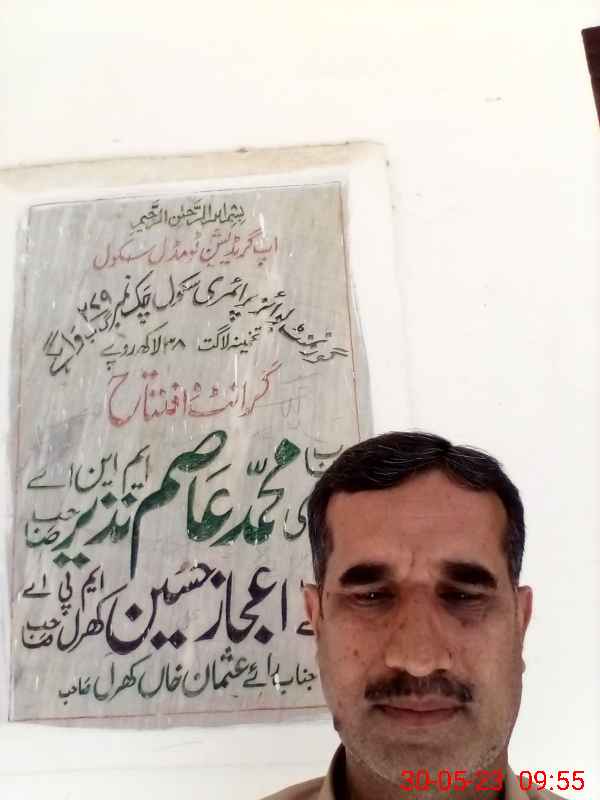 بسم اللہ الرحمٰن الرحیم
اپ گریڈیشن ٹو مڈل سکول
گورنمنٹ بوائز پرائمری سکول چک نمبر 279 گ ب واگ
تخمینہ لاگت 38 لاکھ روپے
گرانٹ و افتتاح
محمد عاصم نذیر صاحب ایم این اے
اعجاز حسین کھرل صاحب ایم پی اے
جناب رائے عثمان خاں کھرل صاحب
30-05-23 09:55